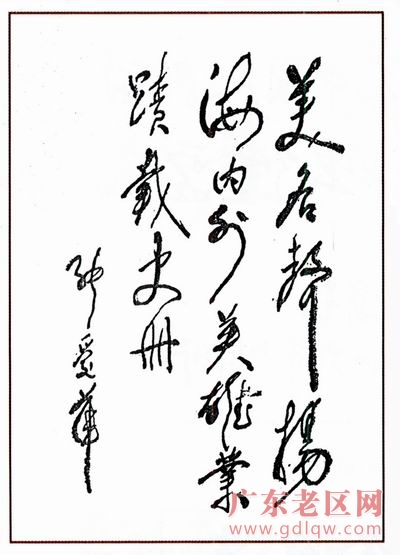 美名聲揚
海内外英雄業
蹟載史册
张爱萍
广东老区网
www.gdlqw.com